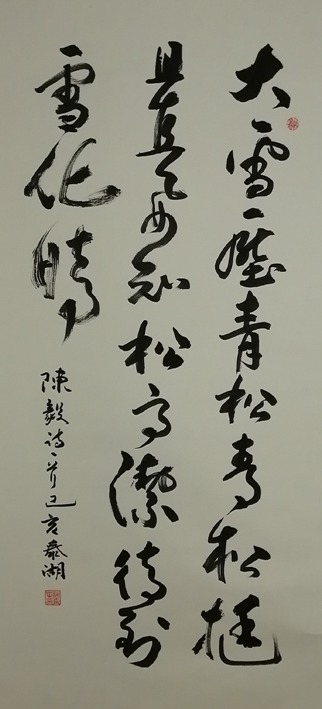 大雪壓青松青松挺
且直要知松高潔待到
雪化時
陳毅詩一首己亥泰湖